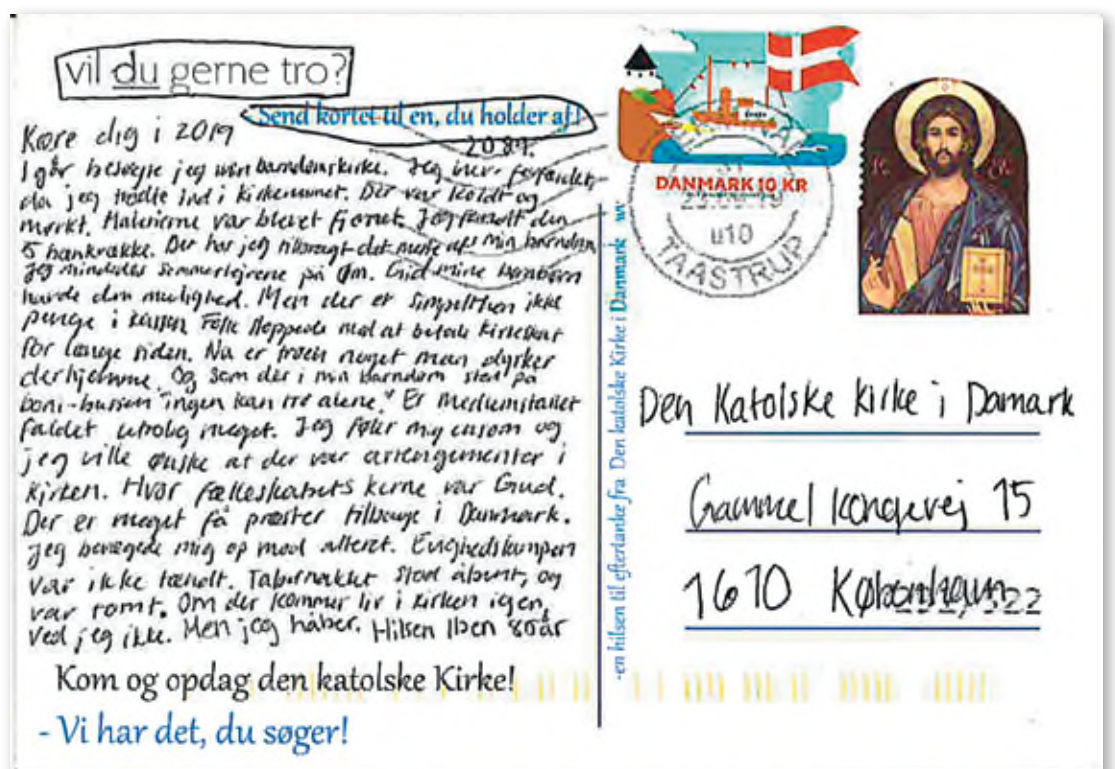 vil du gerne tro?
Send kortet til en, du holder af!
Kære dig i 2019
2089.
I går besøgte jeg min barndomskirke. Jeg blev forfærdet,
da jeg trådte ind i kirkerummet. Der var koldt og
mørkt. Malerierne var blevet fjernet. Jeg fandt den
5 bankrække. Der har jeg tilbragt det meste af min barndom
Jeg mindedes sommerlejrene på Øm. Gid mine børnebørn
havde den mulighed. Men der er simpelthen ikke
penge i kassen Folk stoppede med at betale kirkeskat
for længe siden. Nu er troen noget man dyrker
derhjemme. Og som der i min barndom stod på
boni-bussen "ingen kan tro alene." Er medlemstallet
faldet utrolig meget. Jeg føler mig ensom og
jeg ville ønske at der var arrengementer i
kirken. Hvor fælleskabets kerne var Gud.
Der er meget få præster tilbage i Danmark.
Jeg bevægede mig op mod alteret. Evighedslampen
var ikke tændt. Tabernaklet stod åbent, og
var tomt. Om der kommer liv i kirken igen,
ved jeg ikke. Men jeg håber. Hilsen Iben 80år
Kom og opdag den katolske Kirke!
- Vi har det, du søger!
-en hilsen til eftertanke fra Den katolske Kirke i Danmark
DANMARK 10 KR
u10
TAASTRUP
Den Katolske Kirke i Damark
Gammel kongevej 15
1610 København